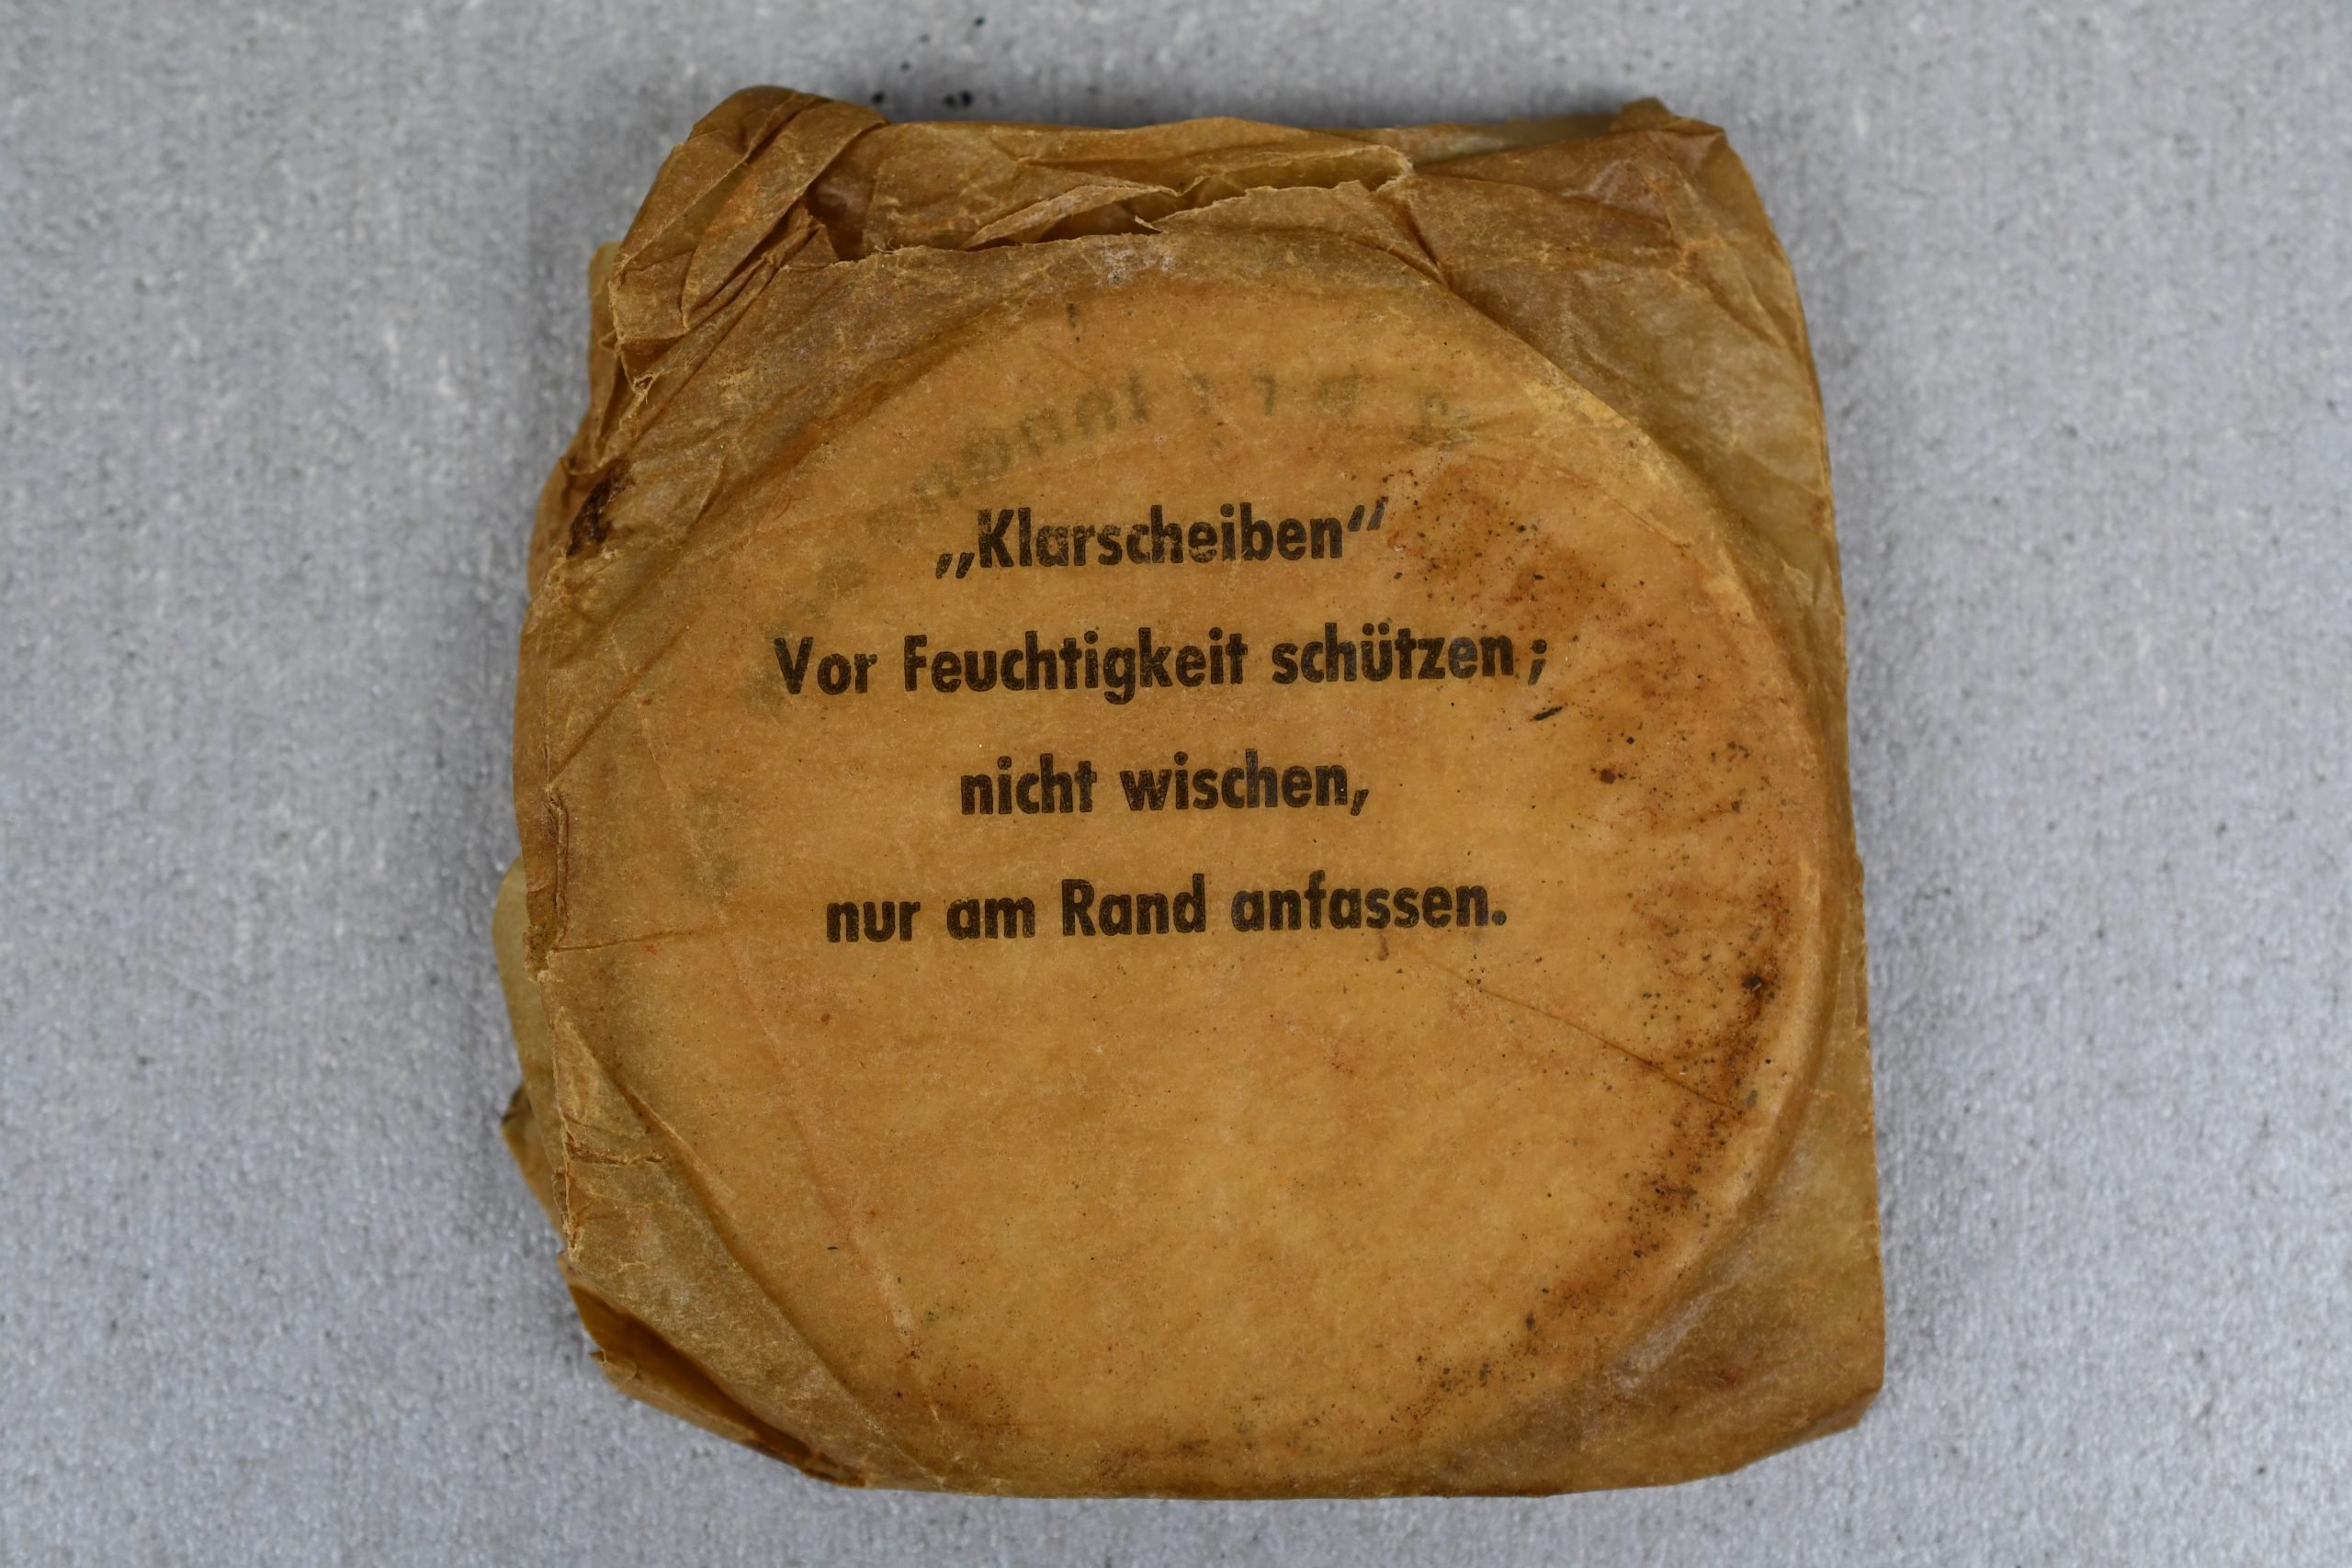 „Klarscheiben“
Vor Feuchtigkeit schützen;
nicht wischen,
nur am Rand anfassen.